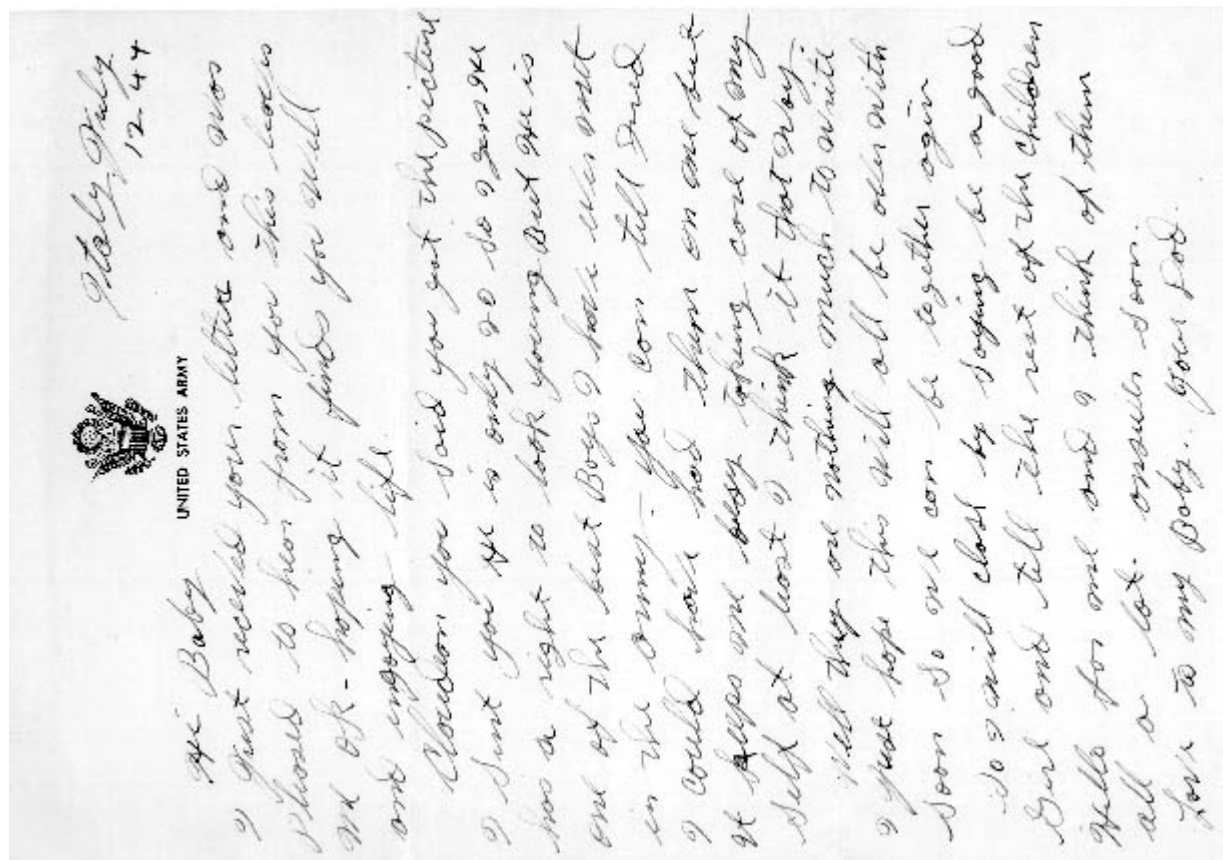 UNITED STATES ARMY
Italy July
12 44
Hi Baby
I Just received your letter and was
Pleased to hear from you this leaves
me OK - hoping it finds you well
and enjoying life.
you said you got the picture
I Sent you He is only 20 so I guess he
has a right to look young But he is
one of the best Boys I have ever met
in the army - you can tell
I could have had them on me but
He keeps me busy taking care of my
Self at least I think it that way.
Well there are nothing much to write
I Just hope this will all be over with
Soon So we can be together again
So I will close by Saying be a good
Girl and tell the rest of the children
Hello for me and I think of them
all a lot. answer soon.
Love to my Baby.. your Dad.